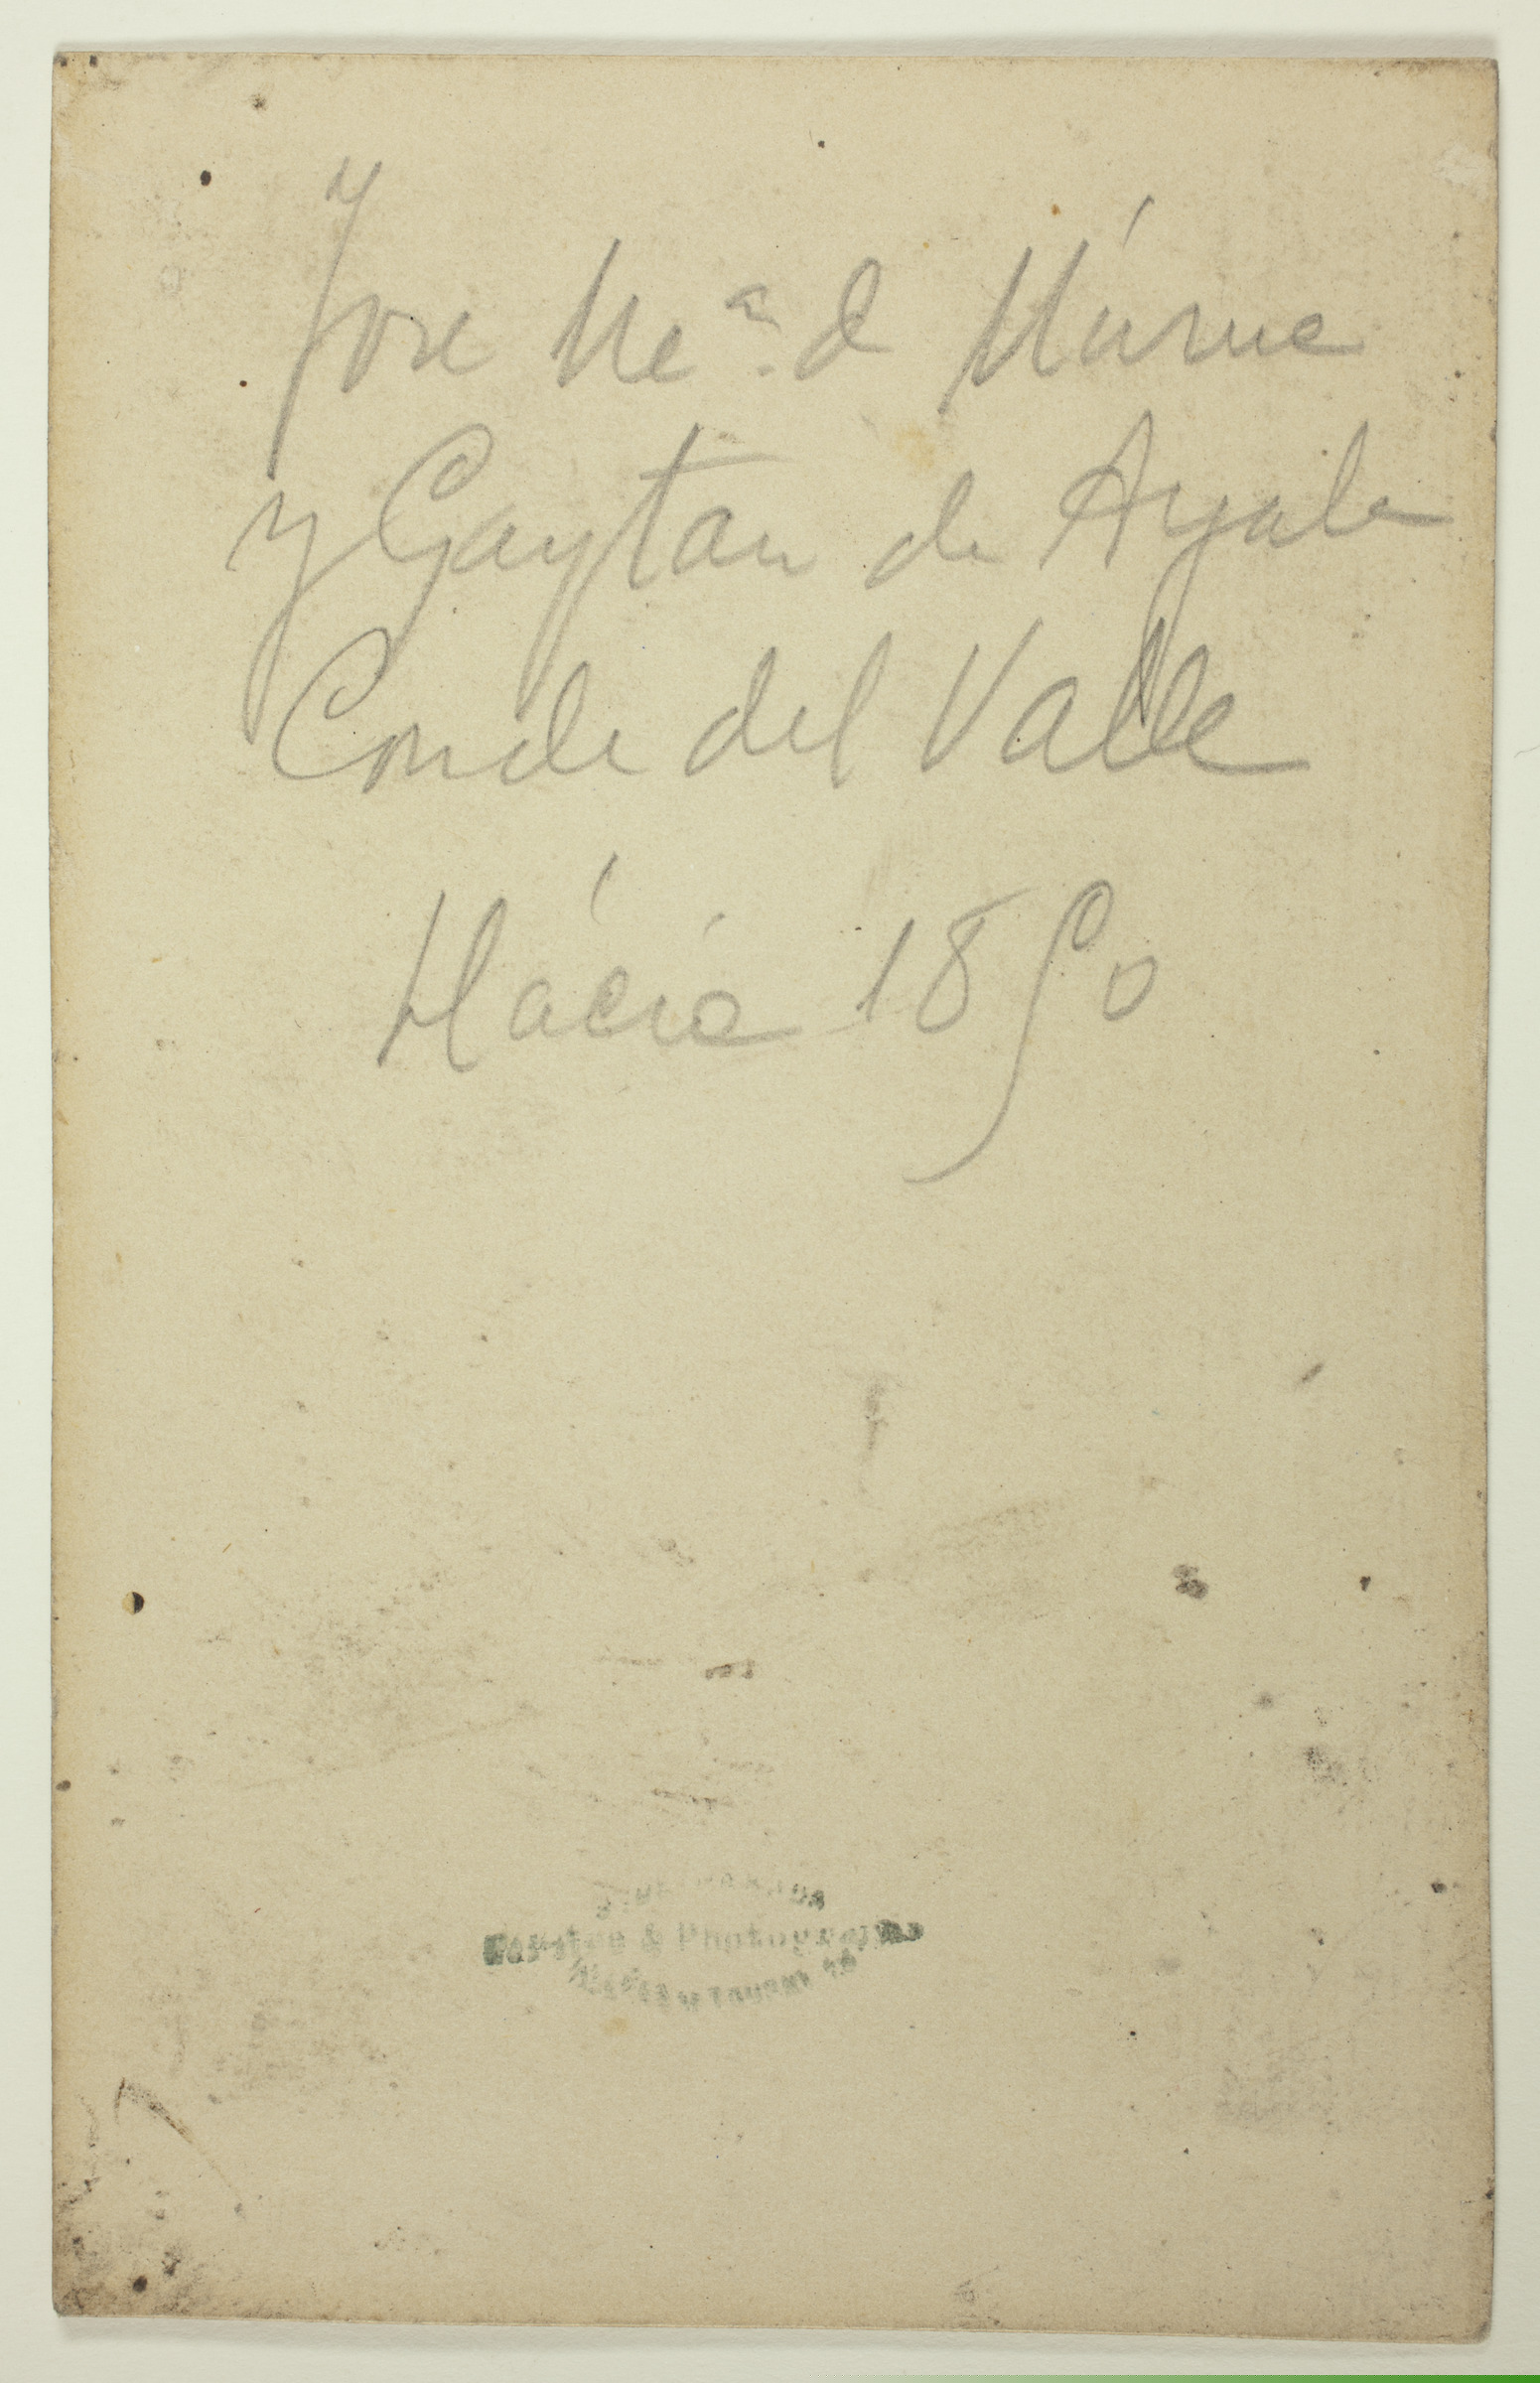 Jose Mª. de Múrue
y Gaytan de Ayala
Conde del Valle
Hácia 1890
& Photographs